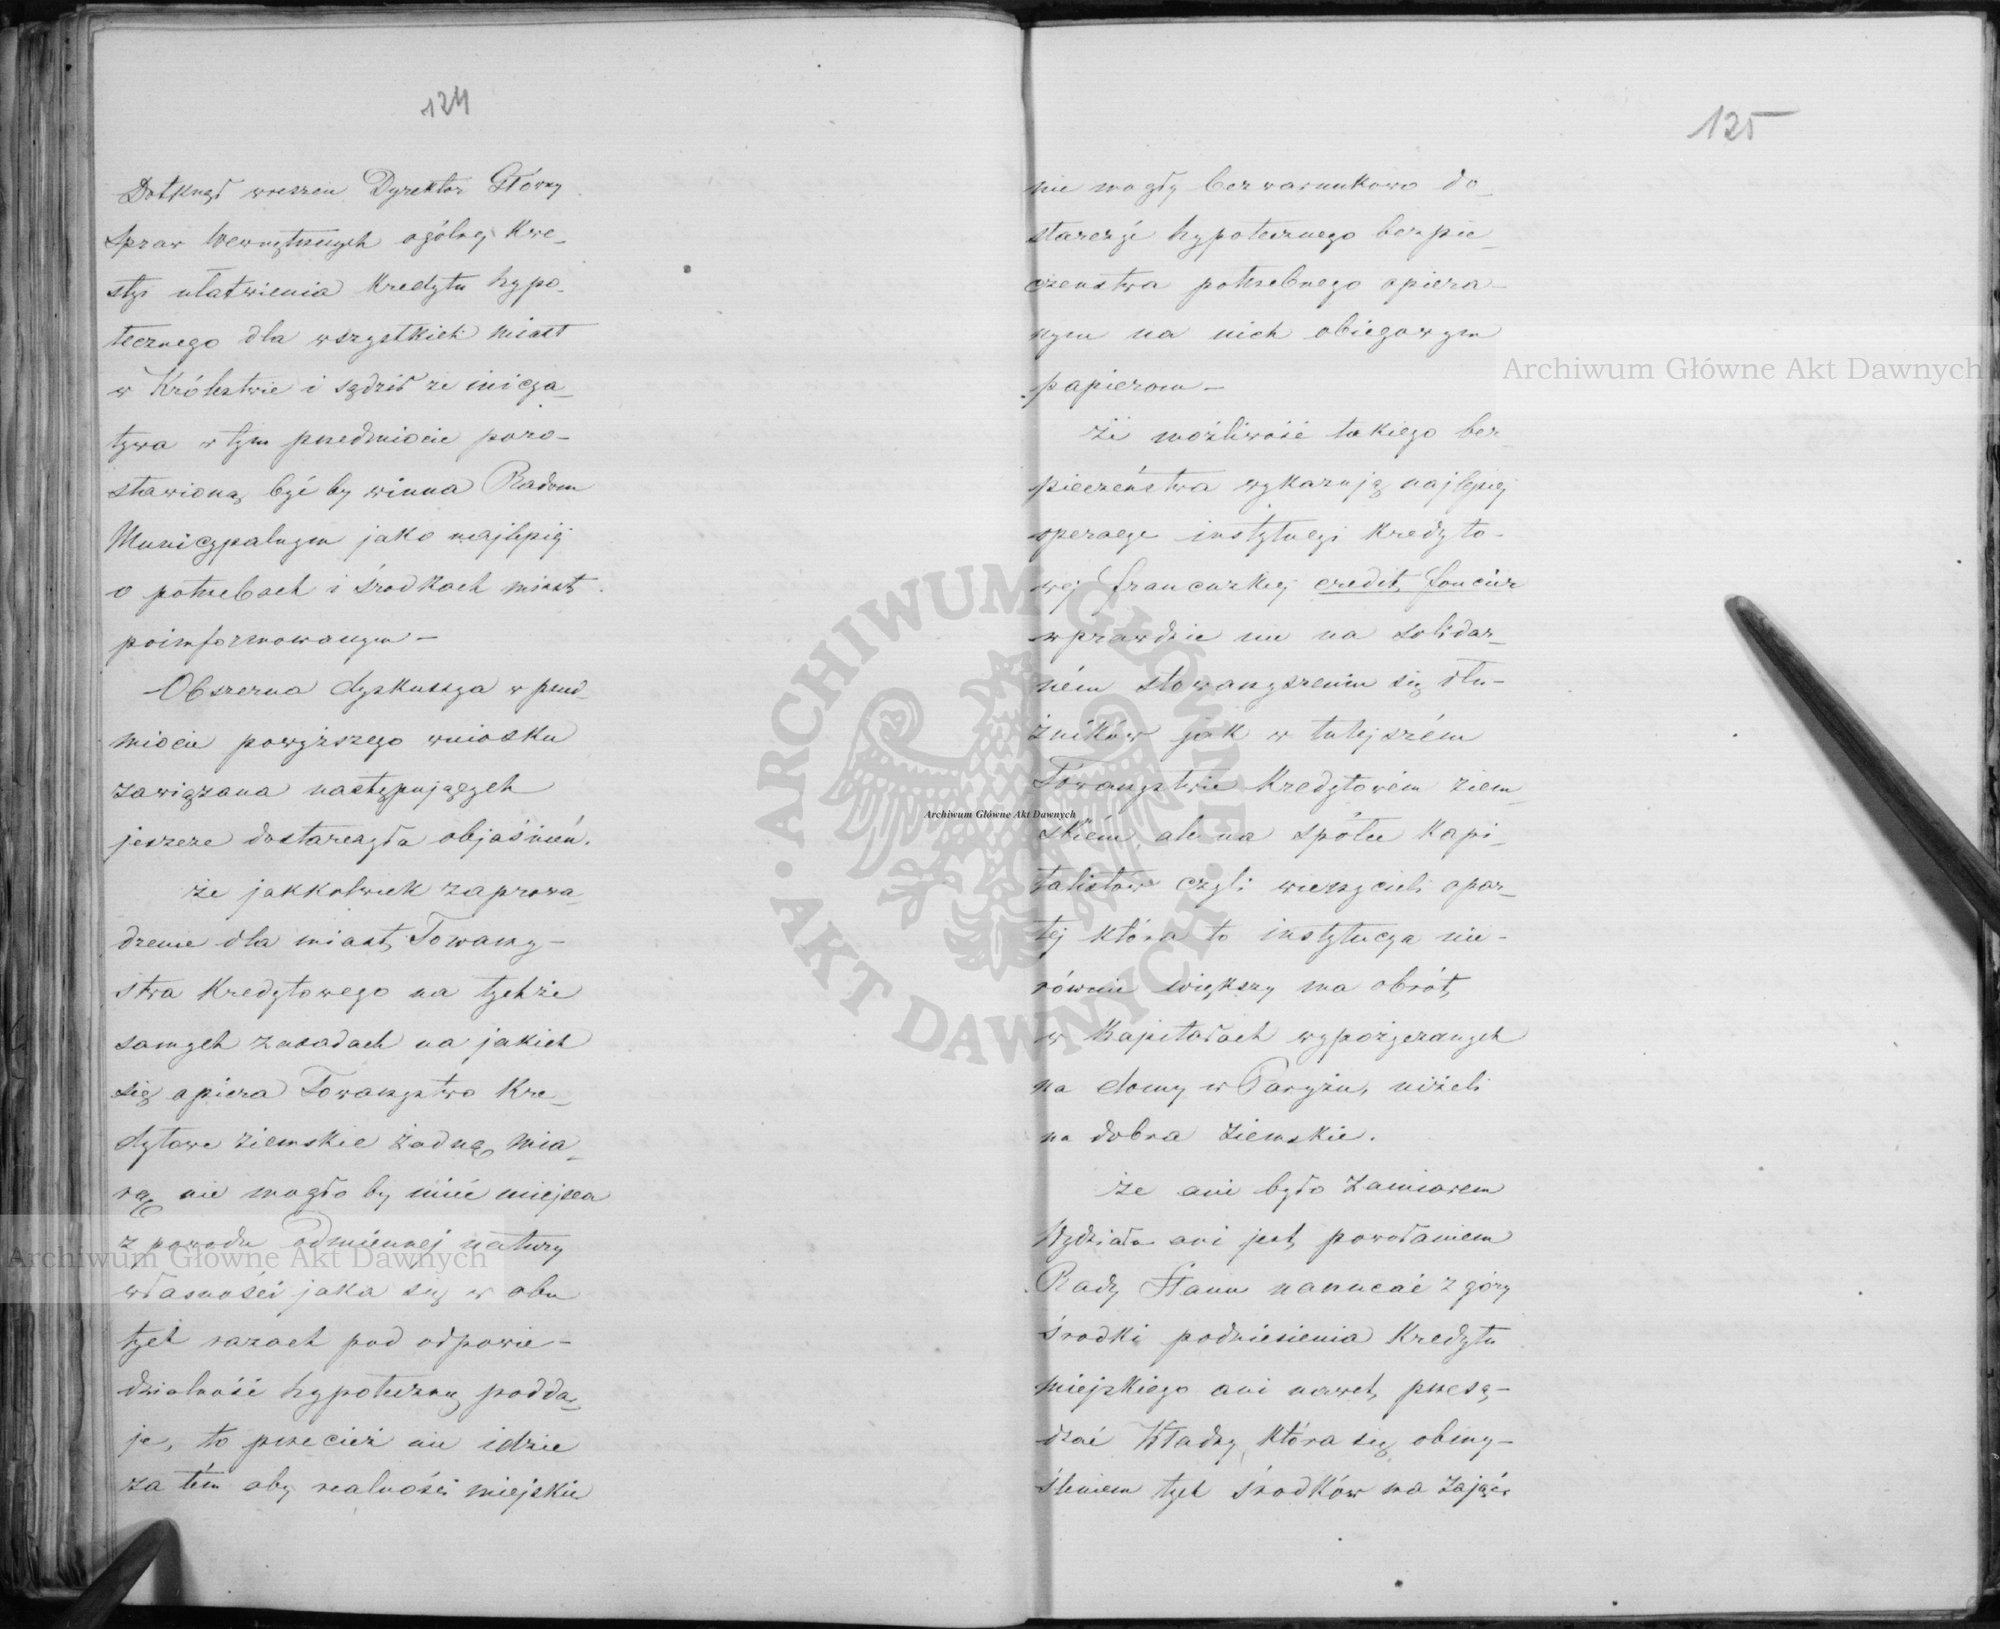 124
Dotknął wreszcie Dyrektor Główny
Spraw Wewnętrznych ogólnej kwe_
styi ułatwienia kredytu hypo_
tecznego dla wszystkich miast
w Królestwie i sądził że inicya_
tywa w tym przedmiocie pozo_
stawioną być by winna Radom
Municypalnym jako najlepiej
o potrzebach i środkach miast
poinformowanym_
Obszerna dyskussya w przed_
miocie powyższego wniosku
zawiązana następujących
jeszcze dostarczyła objaśnień.
że jakkolwiek zaprowa_
dzenie dla miast Towarzy_
stwa Kredytowego na tychże
samych zasadach na jakich
się opiera Towarzystwo Kre_
dytowe ziemskie żadną mia_
rą nie mogło by mieć miejsca
z powodu odmiennej natury
własności jaka się w obu
tych razach pod odpowie_
dzialność hypoteczną podda_
je, to przecież nie idzie
za tém aby realności miejskie
125
nie mogły bezwarunkowo do_
starczyć hypotecznego bezpie_
czeństwa potrzebnego opiera_
nym na nich obiegowym
papierom_
że możliwość takiego bez_
pieczeństwa wykazują najlepiej
operacye instytucyi kredyto_
wej francuzkiej credit foncier
wprawdzie nie na solidar_
ném stowarzyszeniu się dłu_
żników jak w tutejszém
Towarzystwie Kredytowém ziem_
skiém, ale na spółce kapi_
talistów czyli wierzycieli opar_
tej która to instytucya nie_
równie większy ma obrót
w kapitałach wypożyczanych
na domy w Paryżu, niżeli
na dobra ziemskie.
że ani było zamiarem
Wydziału ani jest powołaniem
Rady Stanu narzucać z góry
środki podniesienia kredytu
miejskiego ani nawet przesą_
dzać Władzy, która się obmy_
śleniem tych środków ma zająć,
Archiwum Główne Akt Dawnych
Archiwum Główne Akt Dawnych
Archiwum Główne Akt Dawnych
ARCHIWUM GŁÓWNE · AKT DAWNYCH ·